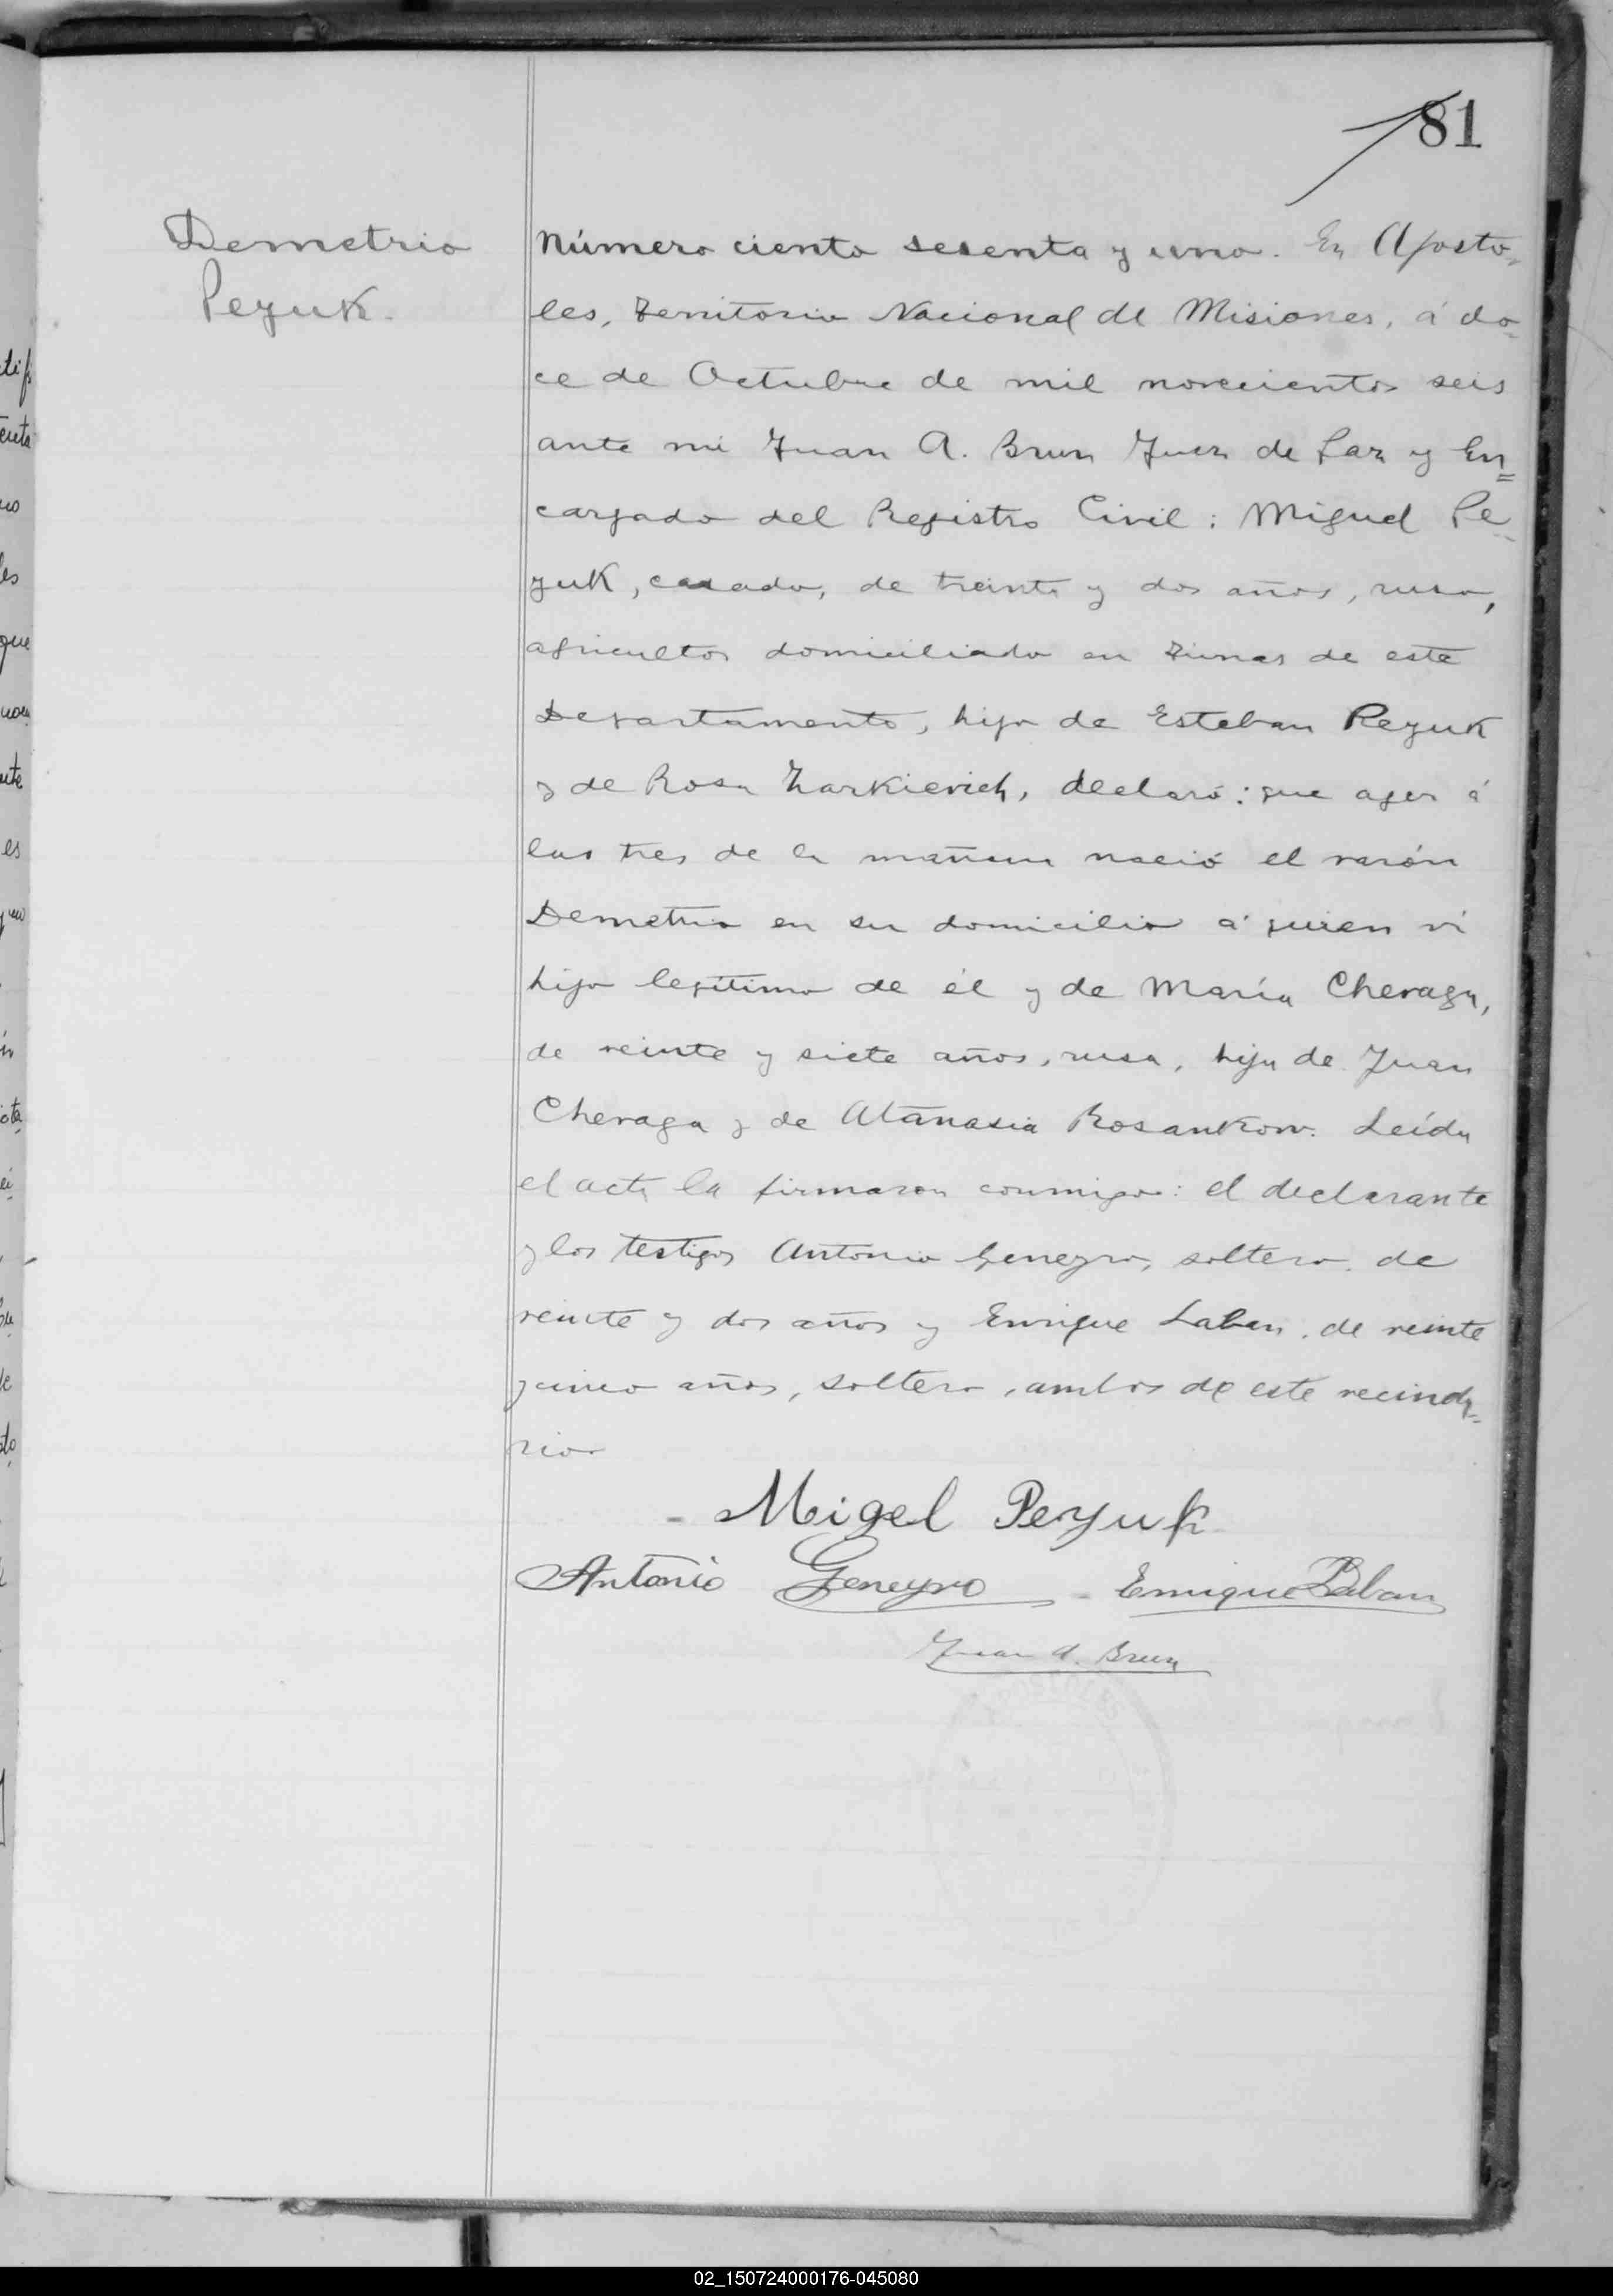 81
Demetrio
Pezuk.
Número ciento sesenta y uno. En Aposto-
les, Territorio Nacional de Misiones, á do-
ce de Octubre de mil novecientos seis
ante mi Juan A. Brun Juez de Paz y En=
cargado del Registro Civil: Miguel Pe-
zuk, casado, de treinta y dos años, ruso,
agricultor domiciliado en de este
Departamento, hijo de Esteban Pezuk
y de Rosa Zarkievich, declaró: que ayer á
las tres de la mañana nació el varón
Demetrio en su domicilio á quien ví
hijo legítimo de él y de María Cheraga,
de veinte y siete años, rusa, hija de Juan
Cheraga y de Atanasia Rosankow. Leída
el acta la firmaron conmigo: el declarante
y los testigos Antonio Geneyro, soltero, de
veinte y dos años y Enrique Laban, de veinte
y cinco años, soltero, ambos de este vecinda-
rio
- Migel Pezyuk
Antonio Geneyro - Enrique Laban
Juan A. Brun
02_150724000176-045080